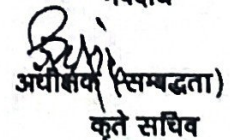 अधीक्षक (सम्बद्धता)
कृते सचिव